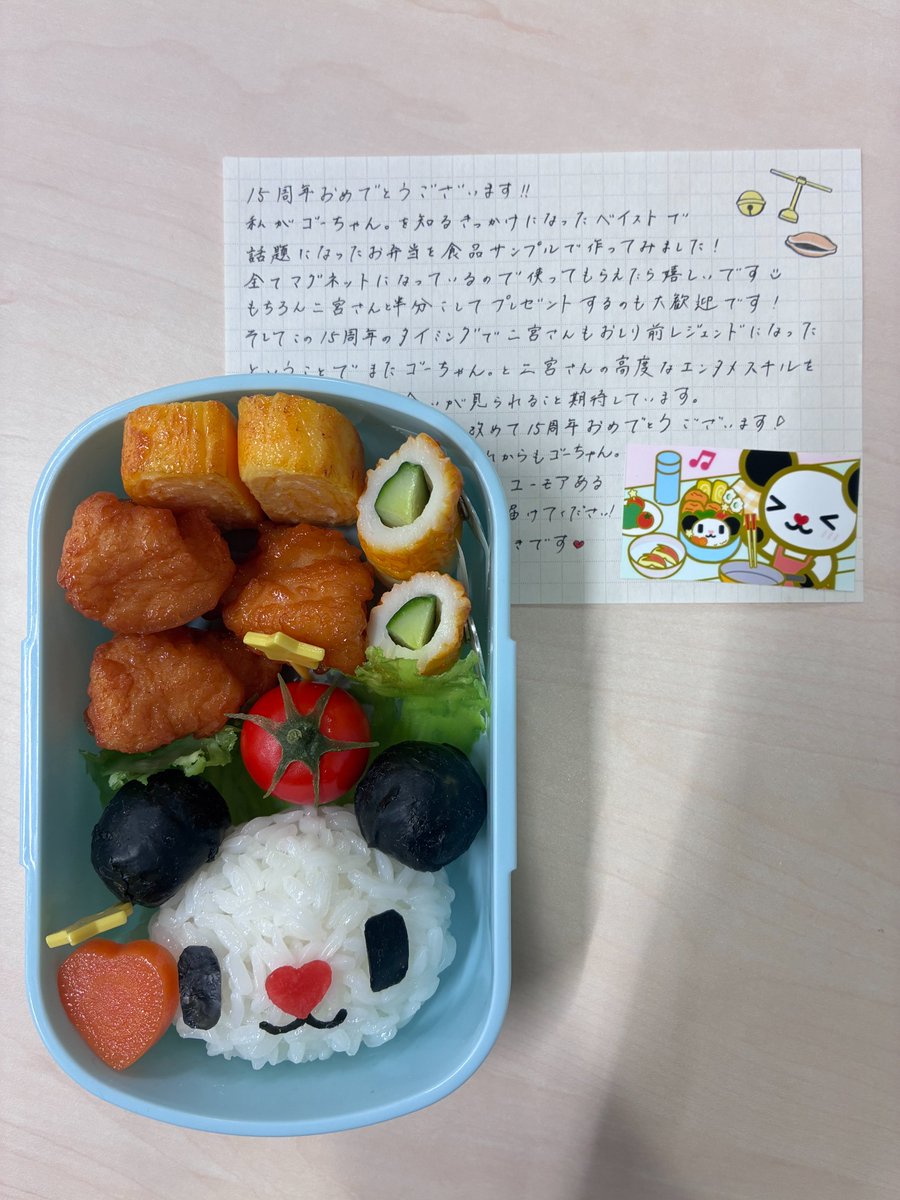 15周年おめでとうございます!!
私がゴーちゃん。を知るきっかけになったベイストで
話題になったお弁当を食品サンプルで作ってみました!
全てマグネットになっているので使ってもらえたら嬉しいです
もちろん二宮さんと半分こしてプレゼントするのも大歓迎です!
そしてこの15周年のタイミングで二宮さんもおしり前レジェンドになった
ということでまたゴーちゃん。と二宮さんの高度なエンタメスキルを
が見られること期待しています。
改めて15周年おめでとうございます♪
れからもゴーちゃん。
ユーモアある
届けてください!
きです♥